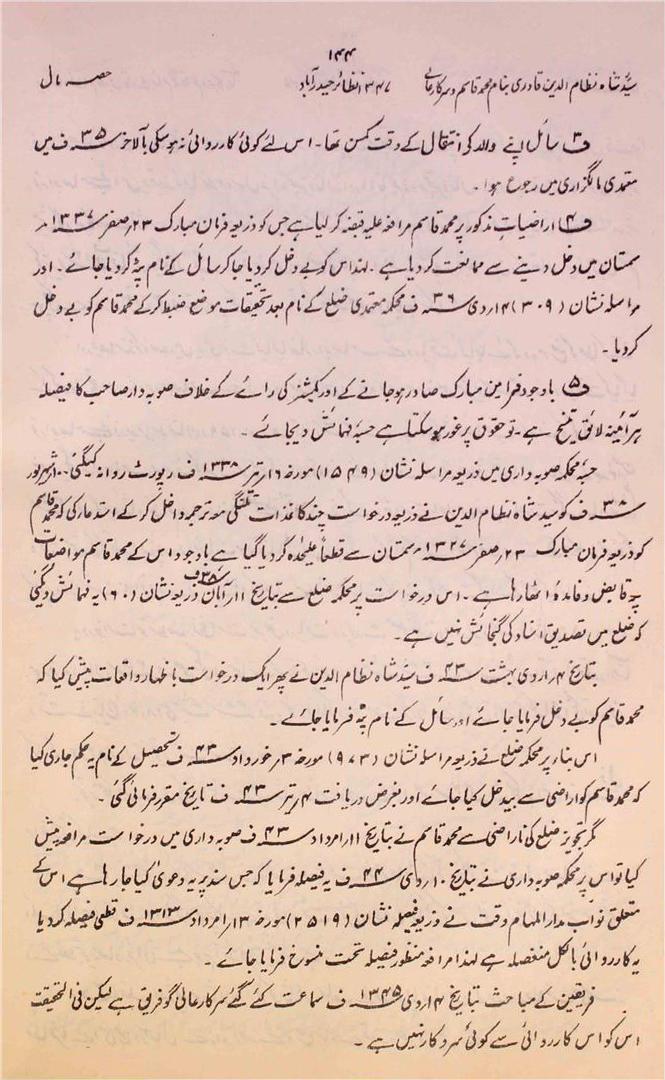 ۱۴۴
سیّد شاہ نظام الدین قادری بنام محمد قاسم و سرکار عالی ۱۳۴۷ نظائر حیدرآباد حصہ مال
ف۳ سائل اپنے والد کو انتقال کے وقت کمسن تھا۔ اس لئے کوئی کارروائی نہ ہوسکی بالآخر ۳۵ ف میں
معتمدی مالگزاری میں رجوع ہوا۔
ف۴ اراضیات مذکور پر محمد قاسم مرافعہ علیہ قبضہ کر لیا ہے جس کو ذریعہ فرمان مبارک ۲۳ صفر ۱۳۳۷
سمستان میں دخل دینے سے ممانعت کردیا ہے۔ لہذا اس کو بے دخل کردیا جاکر سائل کے نام پٹہ کردیا جائے۔ اور
مراسلہ نشان (۳۰۹) ۴ اردی ۳۶ ف محکمہ معتمدی ضلع کے نام بعد تحقیقات موضع ضبط کرکے محمد قاسم کو بے دخل
کردیا۔
ف۵ باوجود فرامین مبارک صادر ہوجانے کے اور کمشنر کی رائے کے خلاف صوبہ دار صاحب کا فیصلہ
ہر آئینہ لائق تنسیخ ہے۔ تو حقوق پر غور ہوسکتا ہے حسبہ فہمائش دیجائے۔
حسبہ محکمہ صوبہ داری میں ذریعہ مراسلہ نشان (۱۵۴۹) مورخہ ۱۶ تیر ۱۳۳۸ ف رپورٹ روانہ کیگئی۔ شہریور
۳۸ ف کو سید شاہ نظام الدین نے ذریعہ درخواست چند کاغذات تلنگی مو ترجمہ داخل کرکے استدعا کی کہ محمد قاسم
کو ذریعہ فرمان مبارک ۲۳ صفر ۱۳۲۷ سمستان سے قطعاً علیحدہ کردیا گیا ہے باوجود اس کے محمد قاسم مواضعات
پر قابض و فائدہ اٹھا رہا ہے۔ اس درخواست پر محکمہ ضلع سے بتاریخ ۱۱ آبان ۳۸ ف ذریعہ نشان (۶۰) یہ فہمائش دیگئی
کہ ضلع میں تصدیق اسناد کی گنجائش نہیں ہے۔
بتاریخ ۴ اردی بہشت ۴۳ ف سید شاہ نظام الدین نے پھر ایک درخواست باظہار واقعات پیش کیا کہ
محمد قاسم کو بے دخل فرمایا جائے اور سائل کے نام پٹہ فرمایا جائے۔
اس بناء پر محکمہ ضلع نے ذریعہ مراسلہ نشان (۹۷۳) مورخہ ۳ خورداد ۴۳ ف تحصیل کے نام یہ حکم جاری کیا
کہ محمد قاسم کو اراضی سے بیدخل کیا جائے اور بغرض دریافت ۴ تیر ۴۳ ف تاریخ مقرر فرمائی گئی۔
مگر تجویز ضلع کی ناراضی سے محمد قاسم نے بتاریخ ۱۱ امرداد ۴۳ ف صوبہ داری میں درخواست مرافعہ پیش
کیا تو اس پر محکمہ صوبہ داری نے بتاریخ ۱۰ دی ۴۴ ف یہ فیصلہ فرمایا کہ جس سند پر یہ دعویٰ کیا جا رہا ہے اس کے
متعلق نواب مدارالمہام وقت نے ذریعہ فیصلہ نشان (۲۵۱۹) مورخہ ۱۳ امرداد ۱۳۱۳ ف قطعی فیصلہ کردیا
یہ کارروائی بالکل منفصلہ ہے لہذا مرافعہ منظور فیصلہ تحت منسوخ فرمایا جائے۔
فریقین کے مباحث بتاریخ ۴ اردی ۱۳۴۵ ف سماعت کئے گئے سرکار عالی گو فریق ہے لیکن فی الحقیقت
اس کو اس کارروائی سے کوئی سروکار نہیں ہے۔